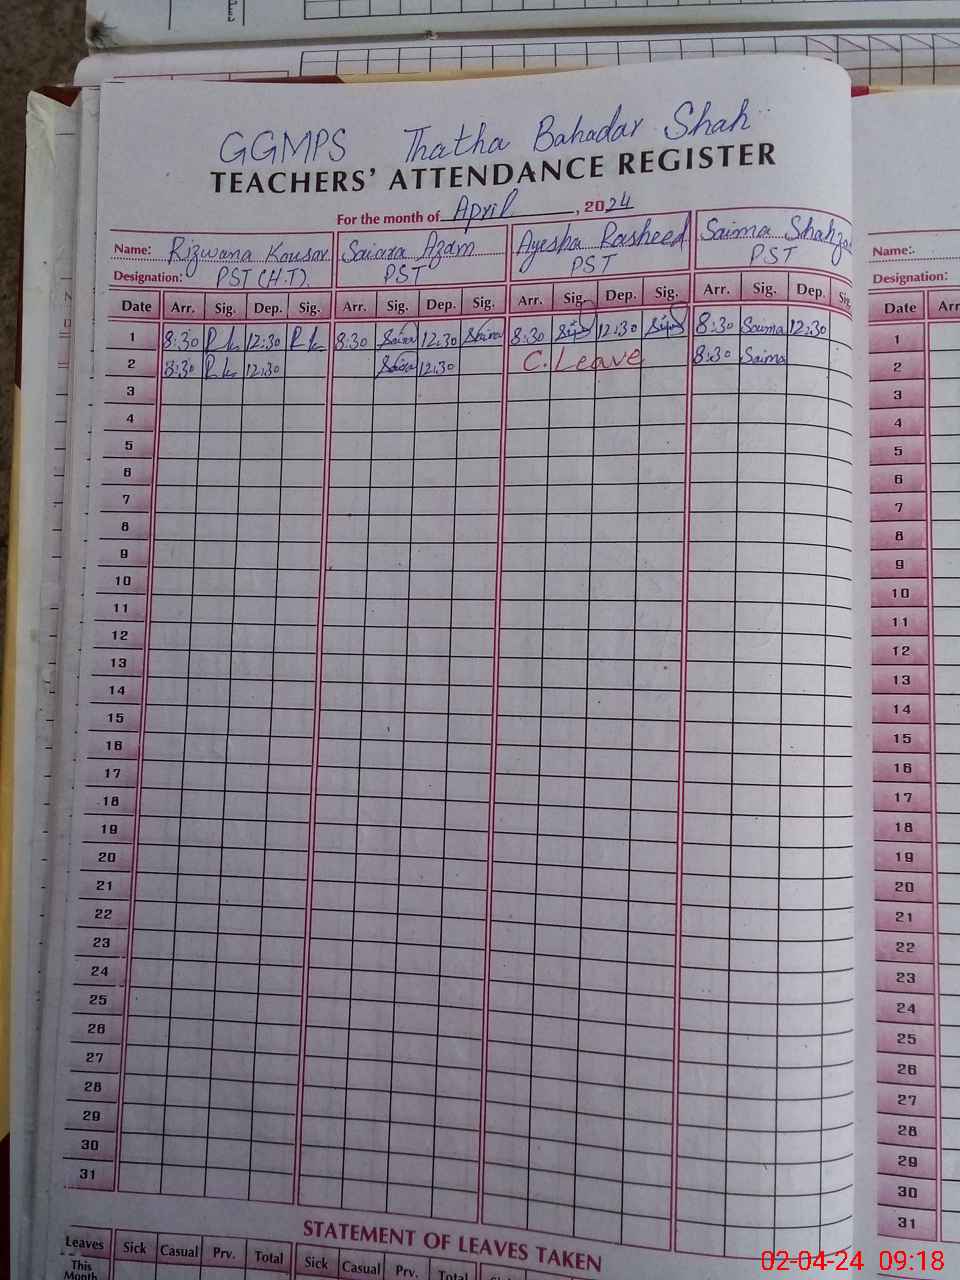 GGMPS Thatha Bahadar Shah
TEACHERS' ATTENDANCE REGISTER
For the month of April, 2024
Name: Rizwana Kousar Saiara Azam Ayesha Rasheed Saima Name:
Designation: PST (H.T) PST PST PST Designation:
Date Arr. Sig. Dep. Sig. Arr. Sig. Dep. Sig. Arr. Sig. Dep. Sig. Arr. Sig. Dep. Sig. Date Arr
1 8:30 12:30 8:30 Saira 12:30 Saira 8:30 12:30 8:30 Saima 12:30 1
2 8:30 12:30 Saira 12:30 C.Leave 8:30 Saima 2
3 3
4 4
5 5
6 6
7 7
8 8
9 9
10 10
11 11
12 12
13 13
14 14
15 15
16 16
17 17
18 18
19 19
20 20
21 21
22 22
23 23
24 24
25 25
26 26
27 27
28 28
29 29
30 30
31 31
STATEMENT OF LEAVES TAKEN
Leaves Sick Casual Prv. Total Sick Casual Prv. Total
This Month
02-04-24 09:18